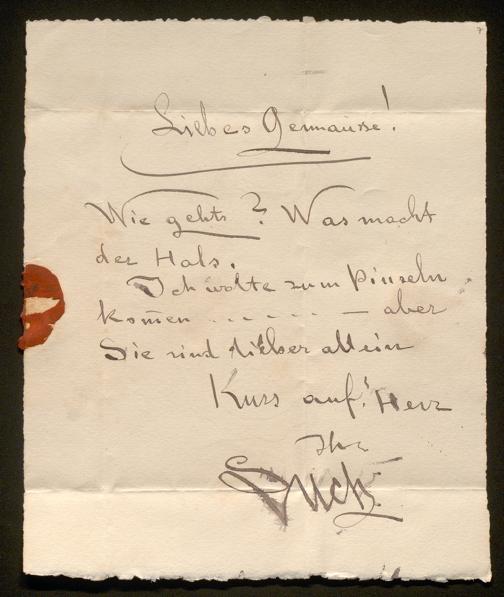 Liebes Germanise!
Wie gehts? Was macht
der Hals.
Ich wolte zum Pinseln
kom̄en . . . . . . — aber
Sie sind lieber allein
Kuss auf's Herz
Ihr